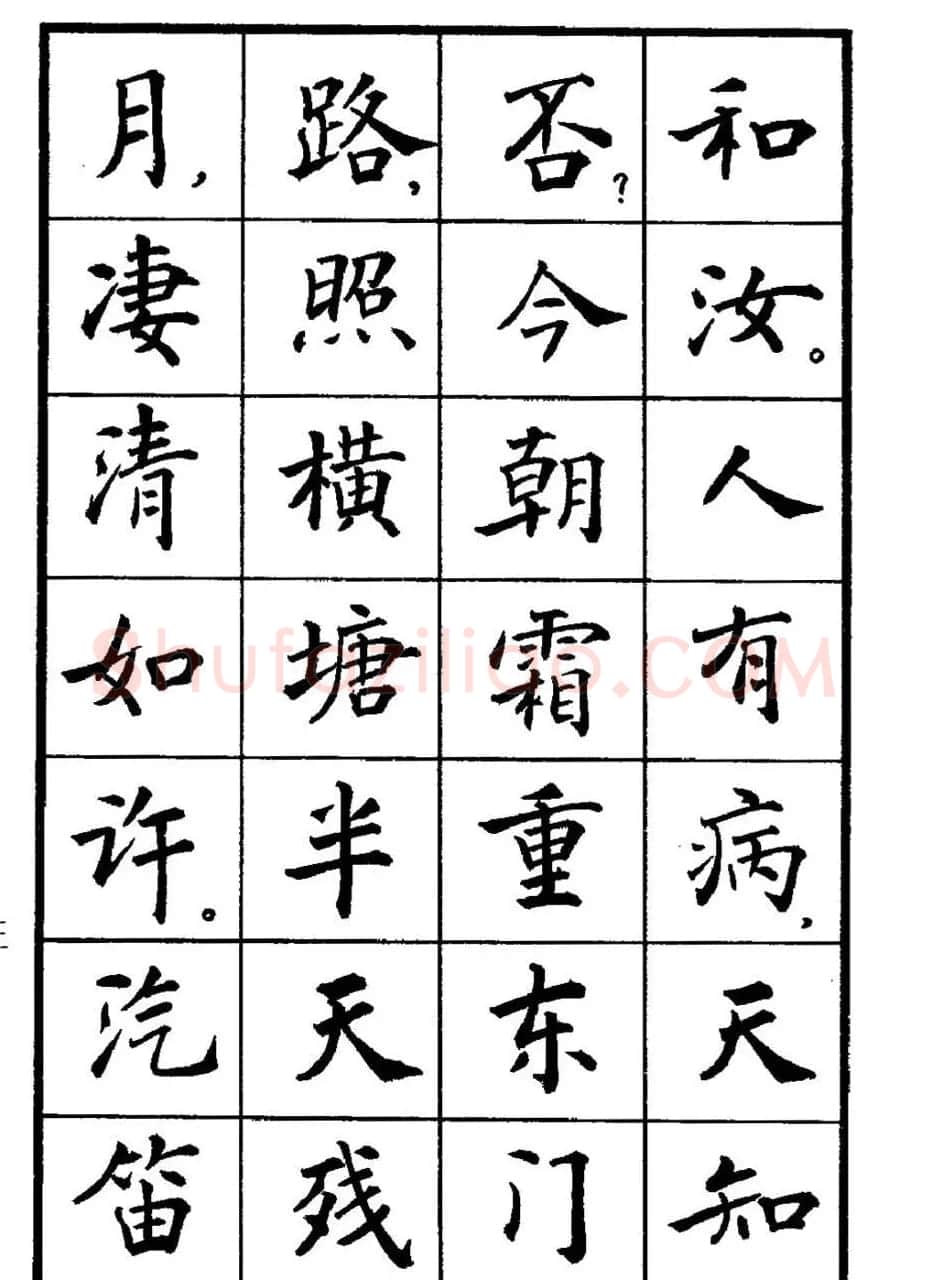 和汝。人有病,天知
否?今朝霜重东门
路,照横塘半天残
月,凄清如许。汽笛
shufaziliao.COM